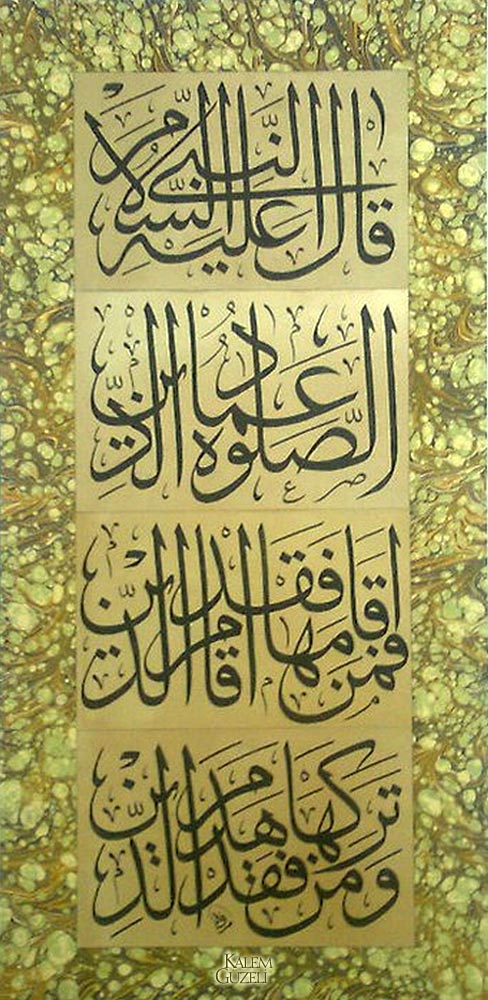 قال النبى عليه السلام
الصلوة عماد الدين
فمن اقامها فقد اقام الدين
ومن تركها فقد هدم الدين
KALEM
GUZELİ